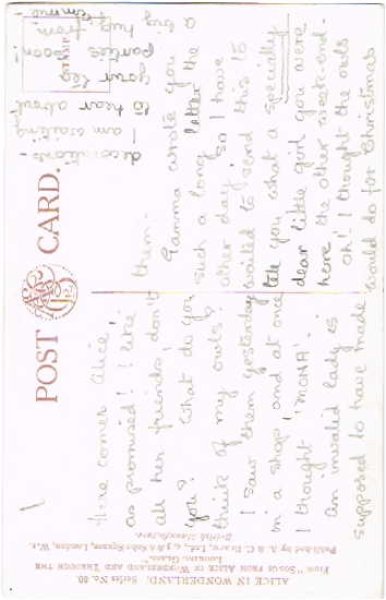 POST CARD.
Here comes Alice!
as promised! I like
all her friends don't
you? What do you
think of my owls?
I saw them yesterday
in a shop and at once
I thought 'MONA'.
An invalid lady is
supposed to have made
them.
Gamma wrote you
such a long letter the
other day so I have
waited to send this to
tell you what a specially
dear little girl you were
here the other week-end.
oh! I thought the owls
would do for Christmas
decorations!
I am waiting
to hear about
your tea
parties soon
Big hug from
ALICE IN WONDERLAND, Series No. 80.
From "Songs from Alice in Wonderland and Through the
Looking Glass."
Published by A. & C. Black, Ltd., 4, 5 & 6 Soho Square, London, W.1.
British Manufacture.